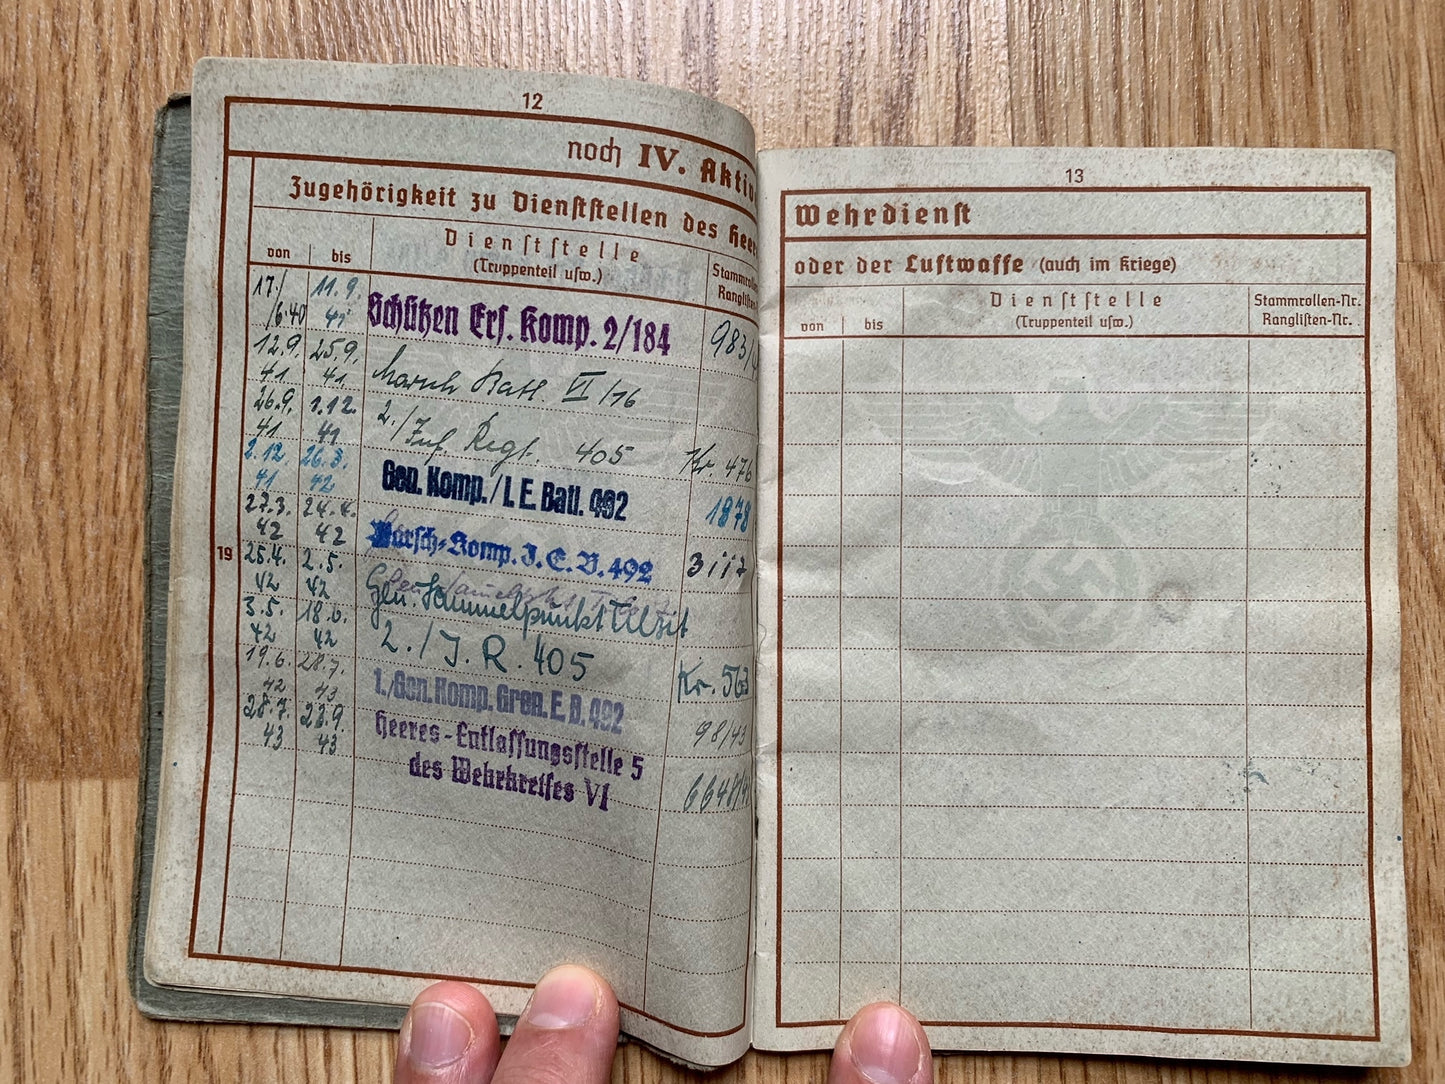 12
noch IV. Aktiv
Zugehörigkeit zu Dienststellen des Heere
von bis Dienststelle
(Truppenteil usw.)
Stammrollen
Ranglisten
17./6.40 11.9.41 Schützen Ers. Komp. 2/184 983/4
12.9.41 25.9.41 Marsch Batl VI/16
26.9.41 1.12.41 2./Inf Regt. 405 Kr. 476
2.12.41 26.3.42 Gen. Komp./I. E. Batl. 492 1878
27.3.42 24.4.42 Marsch-Komp. I. E. B. 492 3117
19
25.4.42 2.5.42 Gen. Sammelpunkt Tilsit
3.5.42 18.6.42 2./J. R. 405 Kr. 563
19.6.42 28.7.43 1./Gen. Komp. Gren. E. B. 492 98/43
28.7.43 23.9.43 Heeres-Entlassungsstelle 5
des Wehrkreises VI 6648/4
13
Wehrdienst
oder der Luftwaffe (auch im Kriege)
von bis Dienststelle
(Truppenteil usw.)
Stammrollen-Nr.
Ranglisten-Nr.